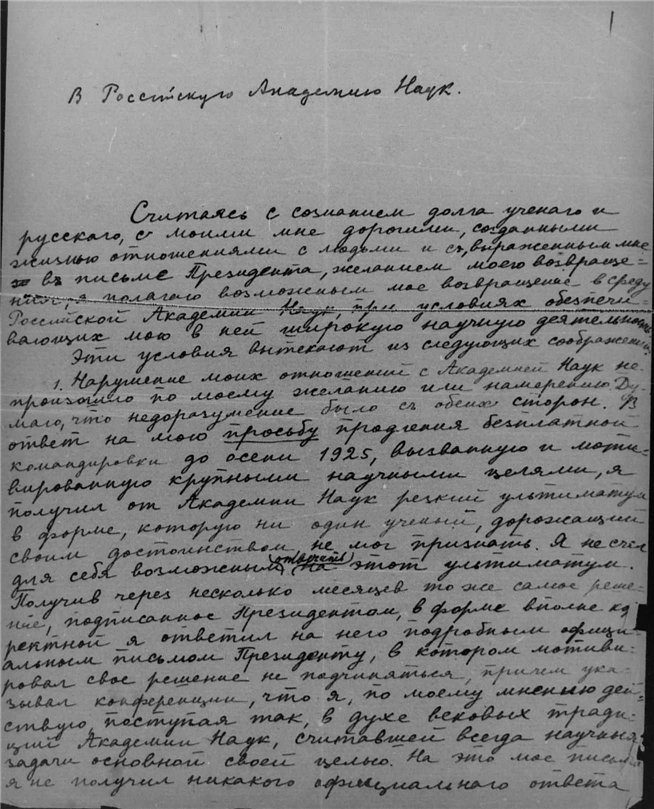 1
В Россійскую Академию Наук.
Считаясь с сознанием долга ученаго и
русскаго, с моими мне дорогими, созданными
жизнью отношениями с людьми и съ, выраженным мне
въ письме Президента, желанием моего возвраще-
нія, я полагаю возможным мое возвращение в среду
Российской Академии Наук, при условиях обезпечи-
вающих мою в ней широкую научную деятельность
Эти условия вытекают из следующих соображений.
1. Нарушение моих отношений с Академией Наук не
произошло по моему желанию или намерению. Ду-
маю, что недоразумение было съ обеих сторон. В
ответ на мою просьбу продления безплатной
командировки до осени 1925, вызванную и моти-
вированную крупными научными целями, я
получил от Академии Наук резкий ультиматум
в форме, которую ни один ученый, дорожащий
своим достоинством не мог признать. Я не счел
для себя возможным ответить на этот ультиматум.
Получив через несколько месяцев то же самое реше-
ніе, подписанное Президентом, в форме вполне ко-
ректной я ответил на него подробным официи-
альным письмом Президенту, в котором мотиви-
ровал свое решение не подчиняться, причем ука-
зывал конференции, что я, по моему мнению дей-
ствую, поступая так, в духе вековых тради-
ций Академии Наук, считавшей всегда научныя
задачи основной своей целью. На это мое письмо
я не получил никакого официального ответа